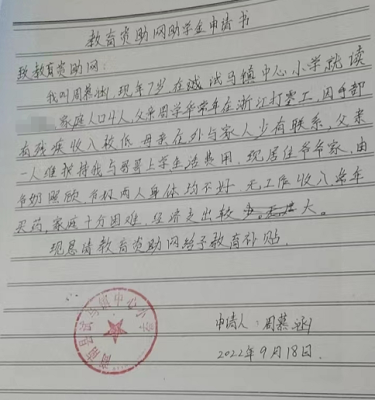 教育资助网助学金申请书
致教育资助网：
我叫周慕涵，现年7岁，在 马镇中心小学就读
家庭人口4人，父亲周学华常年在浙江打零工，因手部
有残疾收入较低，母亲在外与家人少有联系，父亲
一人难扶持我与哥哥上学生活费用，现居住爷爷家，由
爷奶照顾，爷奶两人身体均不好，无工作收入，常年
买药，家庭十分困难，经济支出较大。
现恳请教育资助网给予教育补贴.
申请人：周慕涵
2022年9月18日.
镇中心小学